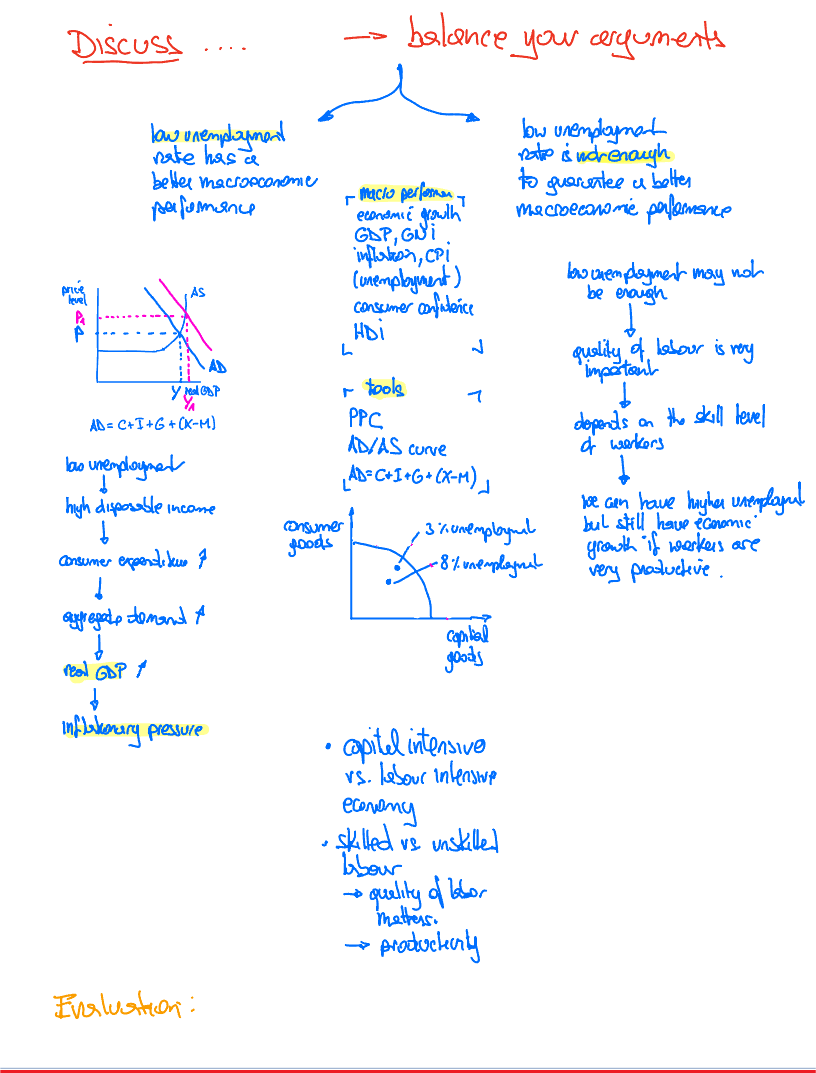 Discuss .... → balance your arguments
low unemployment
rate has a
better macroeconomic
performance
low unemployment
rate is not enough
to guarantee a better
macroeconomic performance
macro performer
economic growth
GDP, GNi
inflation, CPi
(unemployment)
consumer confidence
HDi
tools
PPC
AD/AS curve
AD=C+I+G+(X-M)
price
level
P1
P
AS
AD
Y real GDP
Y1
AD=C+I+G+(X-M)
low unemployment
high disposable income
consumer expenditure ↑
aggregate demand ↑
real GDP ↑
inflationary pressure
consumer
goods
3% unemployment
8% unemployment
capital
goods
low unemployment may not
be enough
quality of labour is very
important
depends on the skill level
of workers
we can have higher unemploymt
but still have economic
growth if workers are
very productive.
• capital intensive
vs. labour intensive
economy
• skilled vs unskilled
labour
→ quality of labor
matters.
→ productivity
Evaluation: